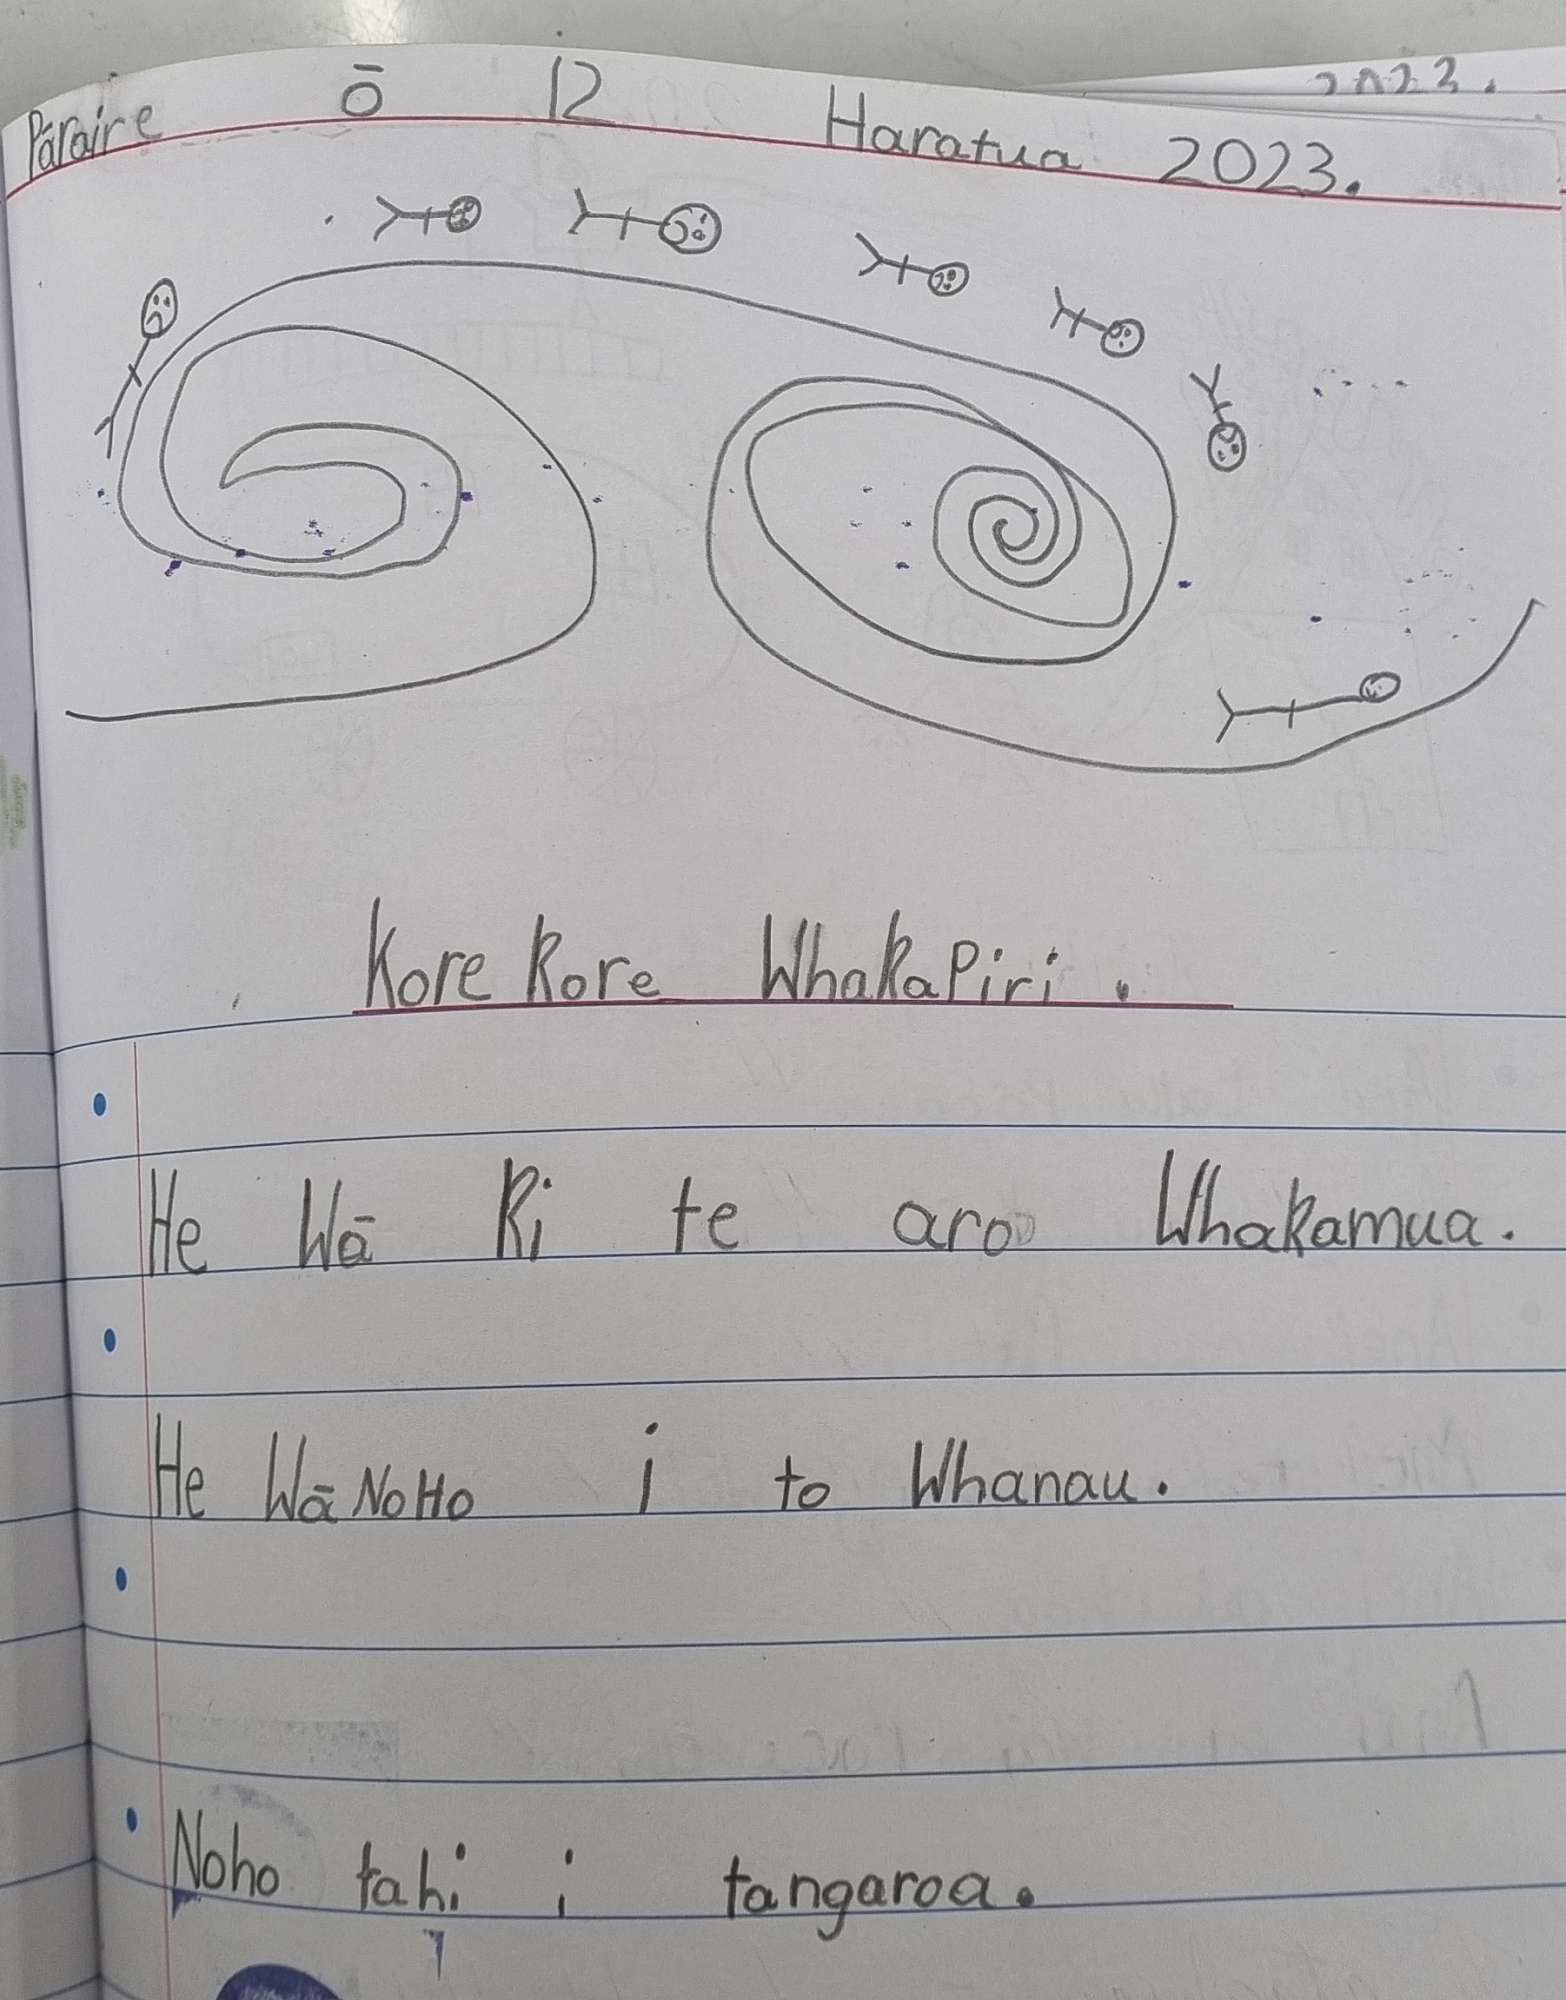 2023.
Pāraire ō 12 Haratua 2023.
Kore Kore WhakaPiri.
He Wā Ki te aro Whakamua.
He Wā NoHo i to Whanau.
Noho tahi i tangaroa.